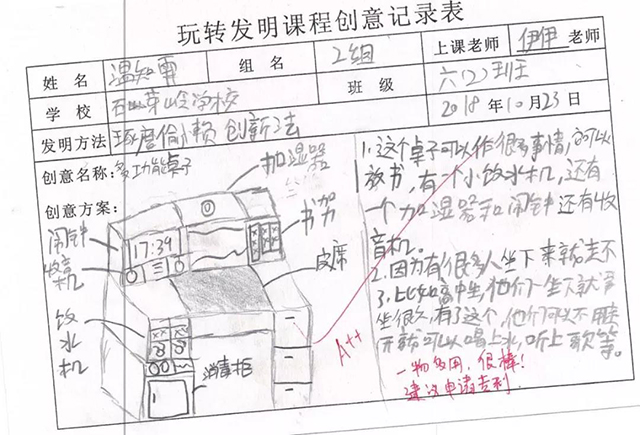 玩转发明课程创意记录表
姓 名 温知雨 组 名 2组 上课老师 伊伊 老师
学 校 石山草岭学校 班 级 六(2)班
发明方法 琢磨偷懒 创新法 2018年10月23日
创意名称:多功能桌子
创意方案:
加湿器
闹钟
17:39
收音机
书架
皮席
饮水机
消毒柜
1.这个桌子可以作很多事情,可以
放书,有一个小饮水机,还有
一个加湿器和闹钟还有收
音机。
2.因为有很多人坐下来就走不
了,比如高中生,他们一坐下就
坐很久,有了这个,他们可以不用
就可以喝上水,听上歌等。
A++
一物多用,很棒!
建议申请专利.